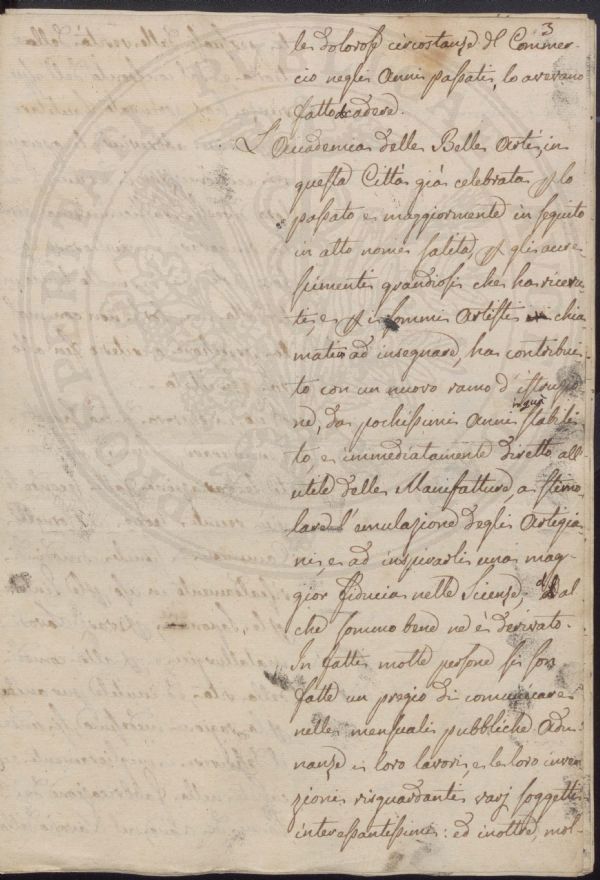 3
le dolorose circostanze del Commer-
cio negli Anni passati, lo avevano
fatto decadere.
L'Accademia delle Belle Arti, in
questa Città già celebrata p lo
passato e maggiormente in seguito
in alto nome salita, p gli accre-
scimenti grandiosi che ha ricevu-
ti, e p i sommi Artisti chia
mativi ad insegnare, ha contribui-
to con un nuovo ramo d'istruzio
ne, da pochissimi Anni in quà stabili
to, e immediatamente diretto all'
utile delle Manifatture, a stimo
lare l'emulazione degli Artigia-
ni e ad inspirarli una mag-
gior fiducia nelle Scienze, dal
che sommo bene ne è derivato.
In fatti molte persone si son
fatte un pregio di comunicare
nelle mensuali pubbliche Adu-
nanze i loro lavori, e le loro inven
zioni risguardanti varj soggetti
interessantissimi: ed inoltre, mol-